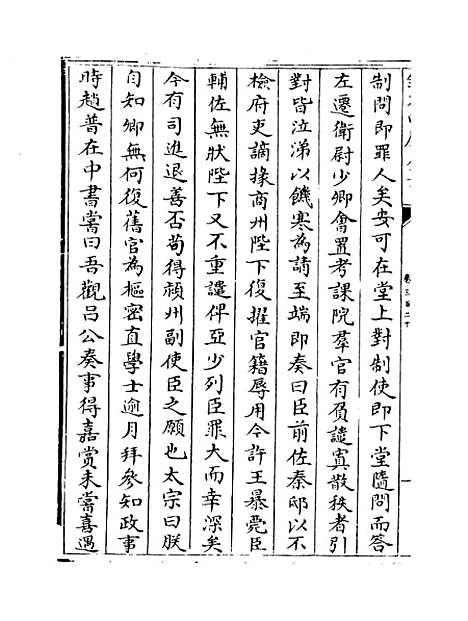 制問即罪人矣安可在堂上對制使即下堂隨問而答
左遷衛尉少卿會置考課院羣官有負譴寘散秩者引
對皆泣涕以饑寒為請至端即奏曰臣前佐秦邸以不
檢府吏謫掾商州陛下復擢官籍辱用今許王暴薨臣
輔佐無狀陛下又不重譴俾亞少列臣罪大而幸深矣
今有司進退善否茍得潁州副使臣之願也太宗曰朕
自知卿無何復舊官為樞密直學士逾月拜參知政事
時趙普在中書嘗曰吾觀呂公奏事得嘉賞未嘗喜遇
卷三百二十